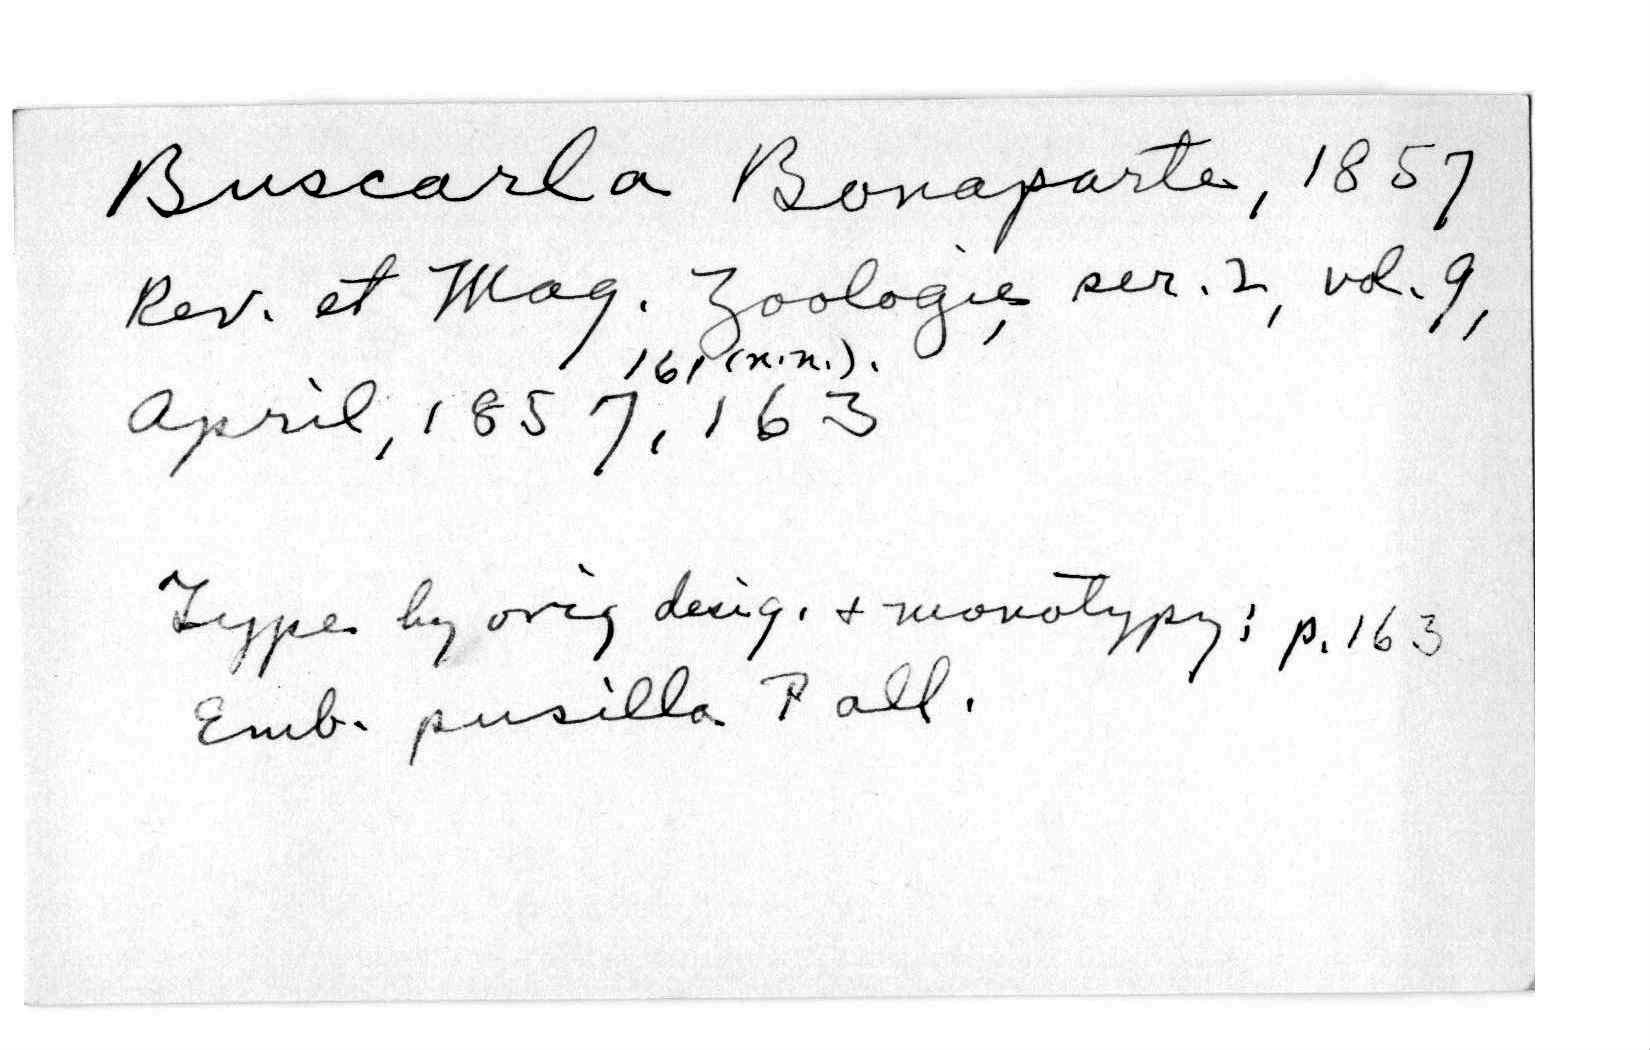 Buscarla Bonaparte, 1857
Rev. et Mag. Zoologie, ser. 2, vol. 9,
161 (n.n.).
April, 1857, 163
Type by orig desig. + monotypy; p. 163
Emb. pusilla Pall.